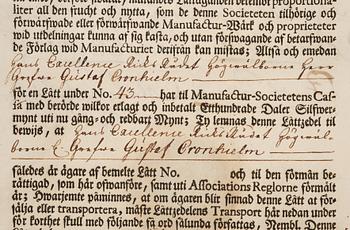 liter all den frucht och nytta, som de Societeten tilhörige och
förwärfwade eller förwärfwande Manufactur-Wärk och proprieteter
wid utdelningar kunna af sig kasta, och utan förwägrande af betwingande
de Förlag wid Manufacturiet derifrån kan mistas; Altså och emedan
Hans Excellence Riks Rådet Högwälborne Herr
Grefwe Gustaf Cronhielm
för en Lått under No. 43 har til Manufactur-Societetens Cas-
sa med berörde wilkor erlagt och inbetalt Etthundrade Daler Silfwer-
mynt uti nu gång- och redbart Mynt; Ty lemnas denne Låttzedel til
bewijs, at Hans Excellence Riks Rådet Högwäl-
borne Grefwe Gustaf Cronhielm
således är ägare af bemelte Lått No. och til den förmån be-
rättigad, som här ofwanföre, samt uti Associations Reglorne förmält
är; Hwarjemte påminnes, at om ägaren blir sinnad denne Lått at för-
sälja eller transportera, måste Låttzedelens Transport här nedan under
för korthet skull med följande få ord sålunda författas, Nembl. Denne